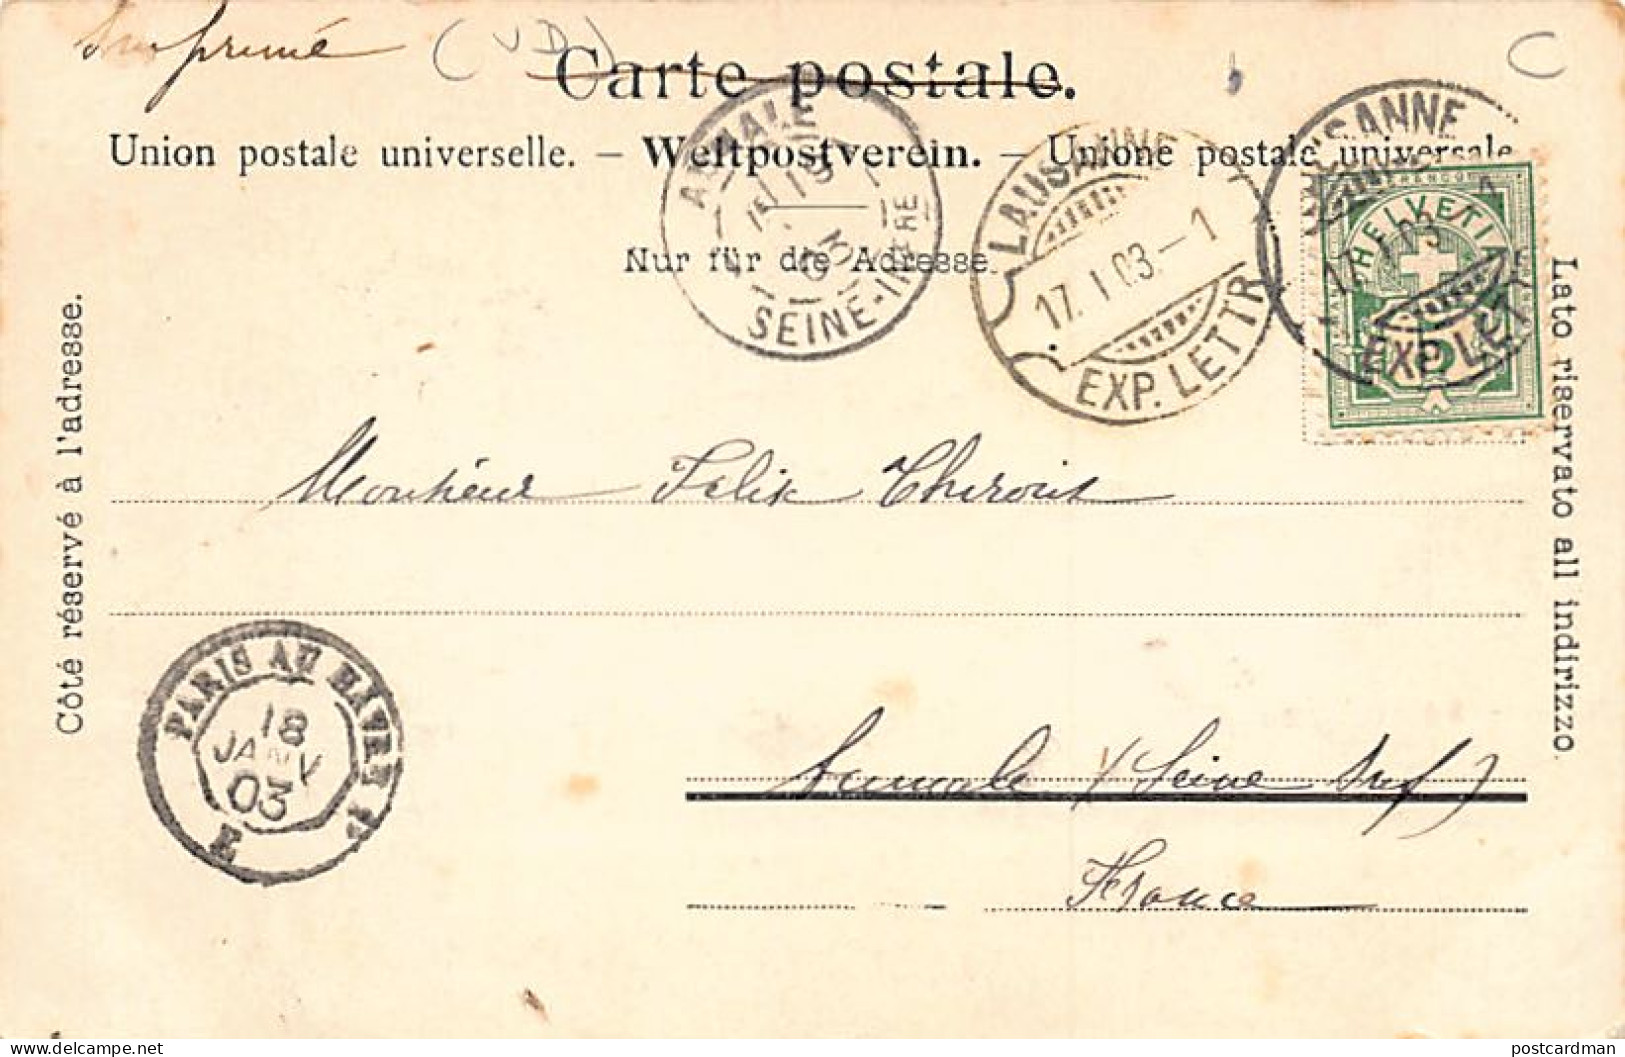 Imprimé (VD) C
Carte postale.
Union postale universelle. – Weltpostverein. – Unione postale universale
Nur für die Adresse.
AUMALE
19
03
SEINE-INFRE
LAUSANNE
17. I 03. – 1
EXP. LETTR.
LAUSANNE
17. I 03 1
EXP. LETTR.
HELVETIA
5
Côté réservé à l'adresse.
Lato riservato all indirizzo.
Monsieur Felix Thirouin
PARIS AU HAVRE 1°
18
JANV
03
E
Aumale (Seine Inf)
France
postcardman